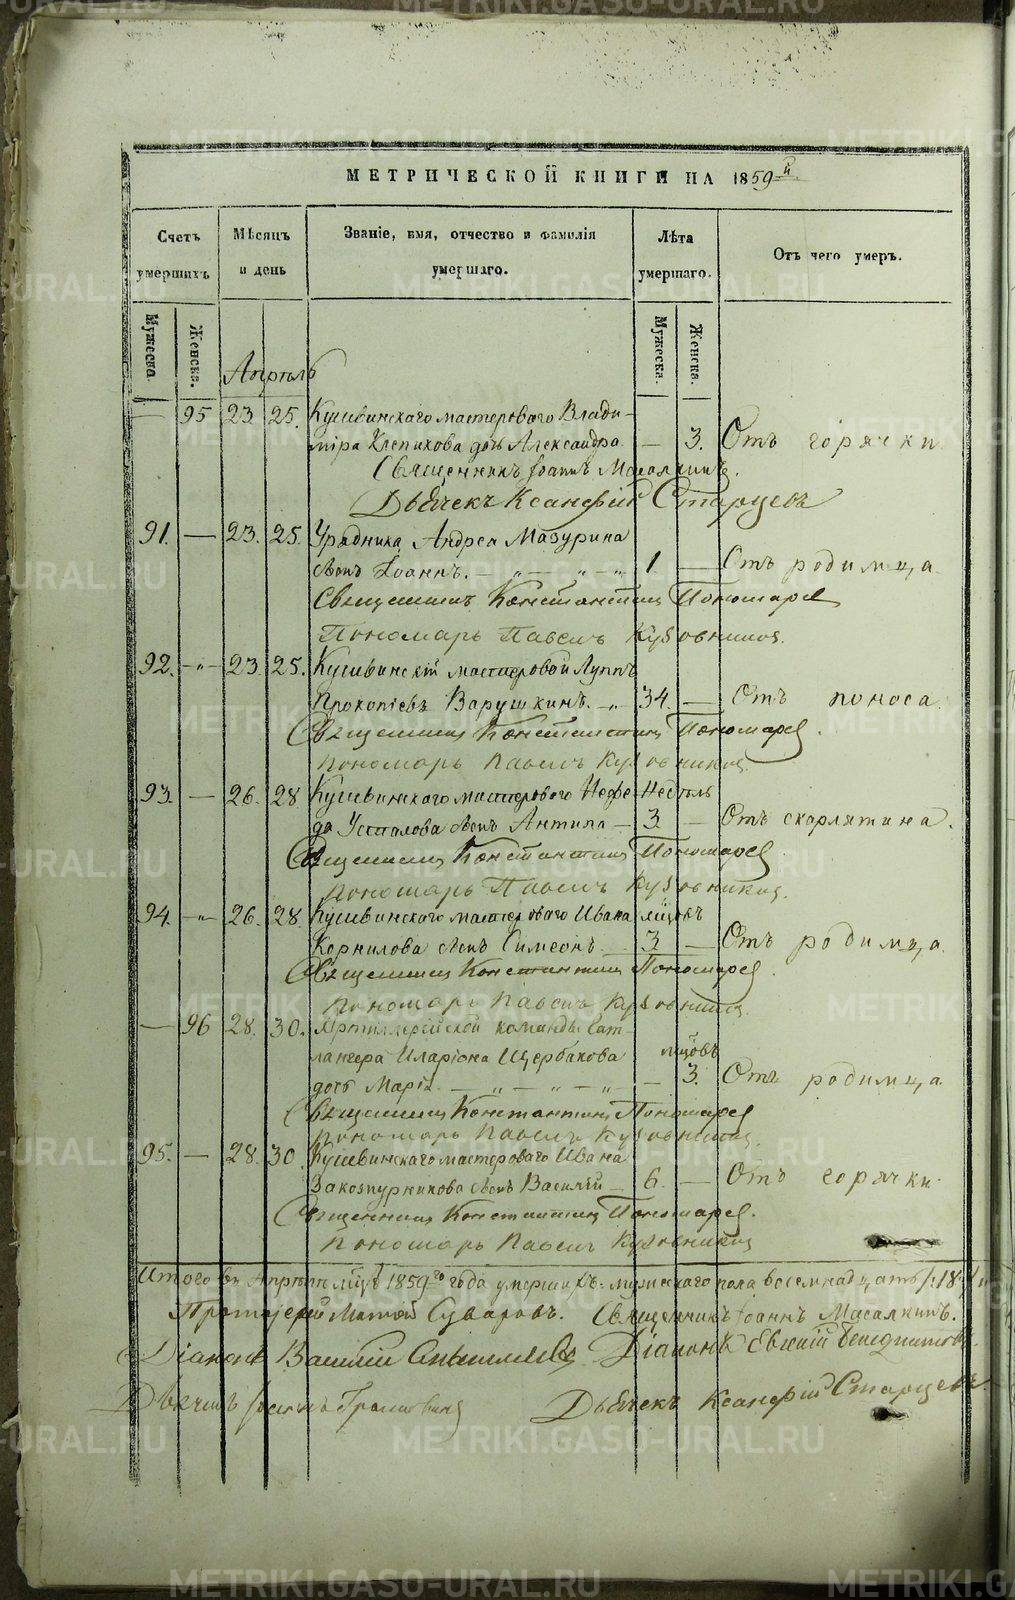 МЕТРИЧЕСКОЙ КНИГИ НА 1859й
Счетъ умершихъ
Мѣсяцъ и день
Званіе, имя, отчество и фамилія умершаго.
Лѣта умершаго.
Отъ чего умеръ.
Мужеска.
Женска.
Мужеска.
Женска.
Апрѣль
— 95 23 25. Кушвинскаго мастероваго Влади-
міра Клепикова дочь Александра — 3. Отъ горячки.
Священникъ Іоаннъ Масалкинъ.
Дьячекъ Ксанфій Старцевъ
91. — 23. 25. Урядника Андрея Мазурина
сынъ Іоаннъ. — „ — „ — „ 1 — Отъ родимца.
Священникъ Константинъ Пономарев
Пономарь Павелъ Кузовников.
92. -„- 23. 25. Кушвинскій мастеровой Луппъ
Прокопіевъ Варушкинъ. -„ 34. — Отъ поноса.
Священникъ Константинъ Пономарев.
Пономарь Павелъ Кузовников.
93. — 26. 28 Кушвинскаго мастероваго Нефе- Недѣль
да Усталова сынъ Антипа — 3 — Отъ скарлятина.
Священникъ Константинъ Пономарев
Пономарь Павелъ Кузовников.
94. -„- 26. 28. Кушвинскаго мастероваго Ивана мцовъ
Корнилова сынъ Симеонъ. 3 — Отъ родимца.
Священникъ Константинъ Пономарев.
Пономарь Павелъ Кузовников
— 96 28. 30. Артиллерійской команды
Иларіона Щербакова мцовъ
дочь Марія. — „ — „ — „ — 3. Отъ родимца.
Священникъ Константинъ Пономарев
Пономарь Павелъ Кузовников.
95. — 28. 30. Кушвинскаго мастероваго Ивана
сынъ Василій — 6. — Отъ горячки.
Священникъ Константинъ Пономарев.
Пономарь Павелъ Кузовников
Итого въ Апрѣлѣ мцѣ 1859го года умершихъ: мужескаго пола восемнадцать /:18:/ и
Протоіерей Суваровъ. Священникъ Іоаннъ Масалкинъ.
Діаконъ Василій Діаконъ Евгеній
Дьячекъ Іоаннъ Дьячекъ Ксанфій Старцевъ.
METRIKI.GASO-URAL.RU